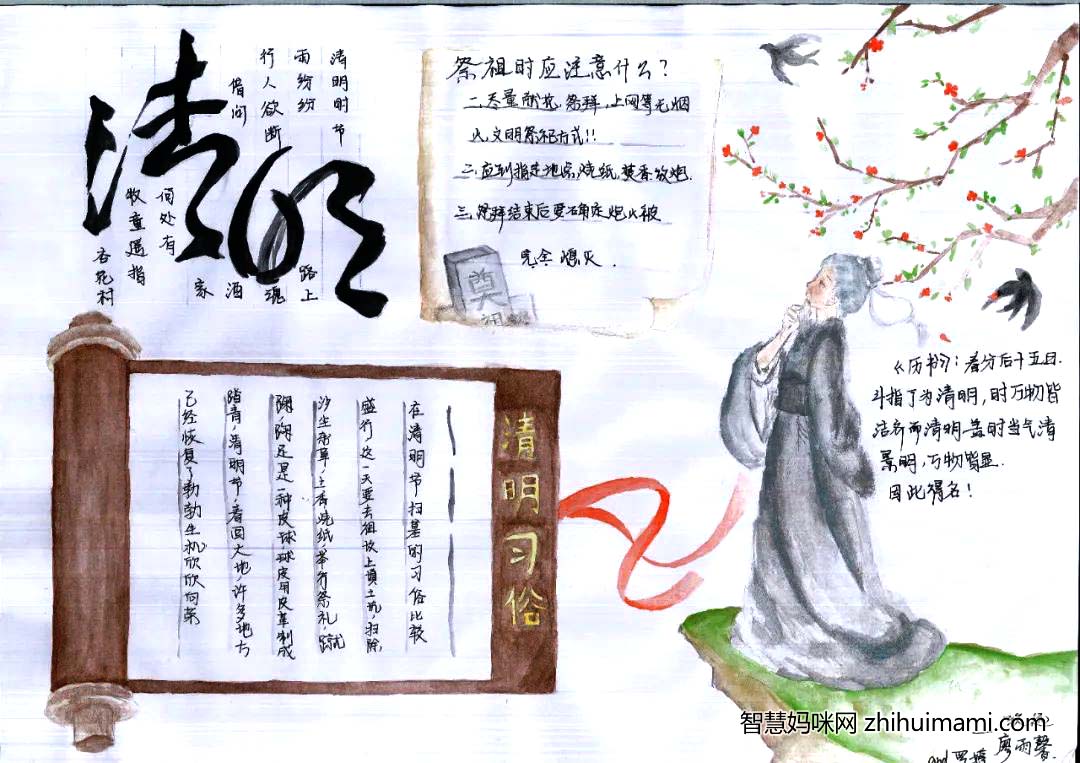 清明
清明时节
雨纷纷
路上
行人欲断
魂
借问
酒
家
何处有
牧童遥指
杏花村
祭祖时应注意什么?
二.尽量献花,祭拜,上网等无烟
火,文明祭祀方式!!
二.应到指定地点,烧纸,焚香放炮.
三.祭拜结束后要确定炮火被
完全熄灭.
奠
祖
清明习俗
在清明节扫墓的习俗比较
盛行这一天要去祖坟上填土,扫除
沙尘杂草,上香烧纸,举行祭礼,蹴
鞠,鞠还是一种皮球,球皮用皮革制成
踏青,清明节,春回大地,许多地方
已经恢复了勃勃生机欣欣向荣
《历书》:春分后十五日.
斗指丁为清明,时万物皆
洁齐而清明.盖时当气清
景明,万物皆显.
因此得名!
智慧妈咪网 zhihuimami.com
廖雨馨
and